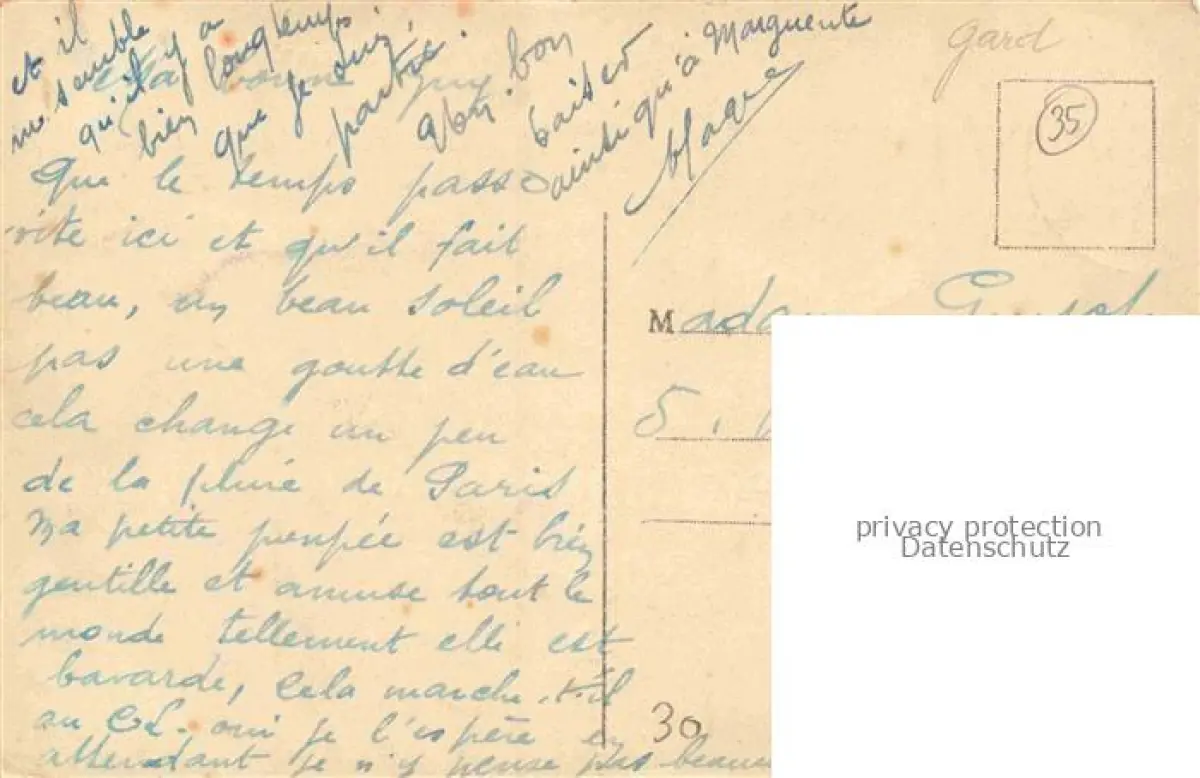 Que le temps passe
vite ici et qu'il fait
beau, un beau soleil
pas une goutte d'eau
cela change un peu
de la pluie de Paris
Ma petite poupée est bien
gentille et amuse tout le
monde tellement elle est
bavarde, Cela marche-t-il
au oui je l'espère en
attendant je n'y pense pas beauc
et il
me semble
qu'il y a
bien longtemps
que je suis
partie.
bon
baiser
ainsi qu'à Marguerite
Gard
35
Madame
5,
30
privacy protection
Datenschutz